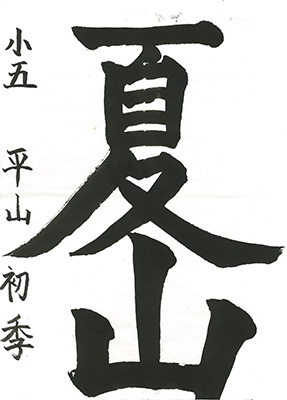 夏山
小五 平山初季